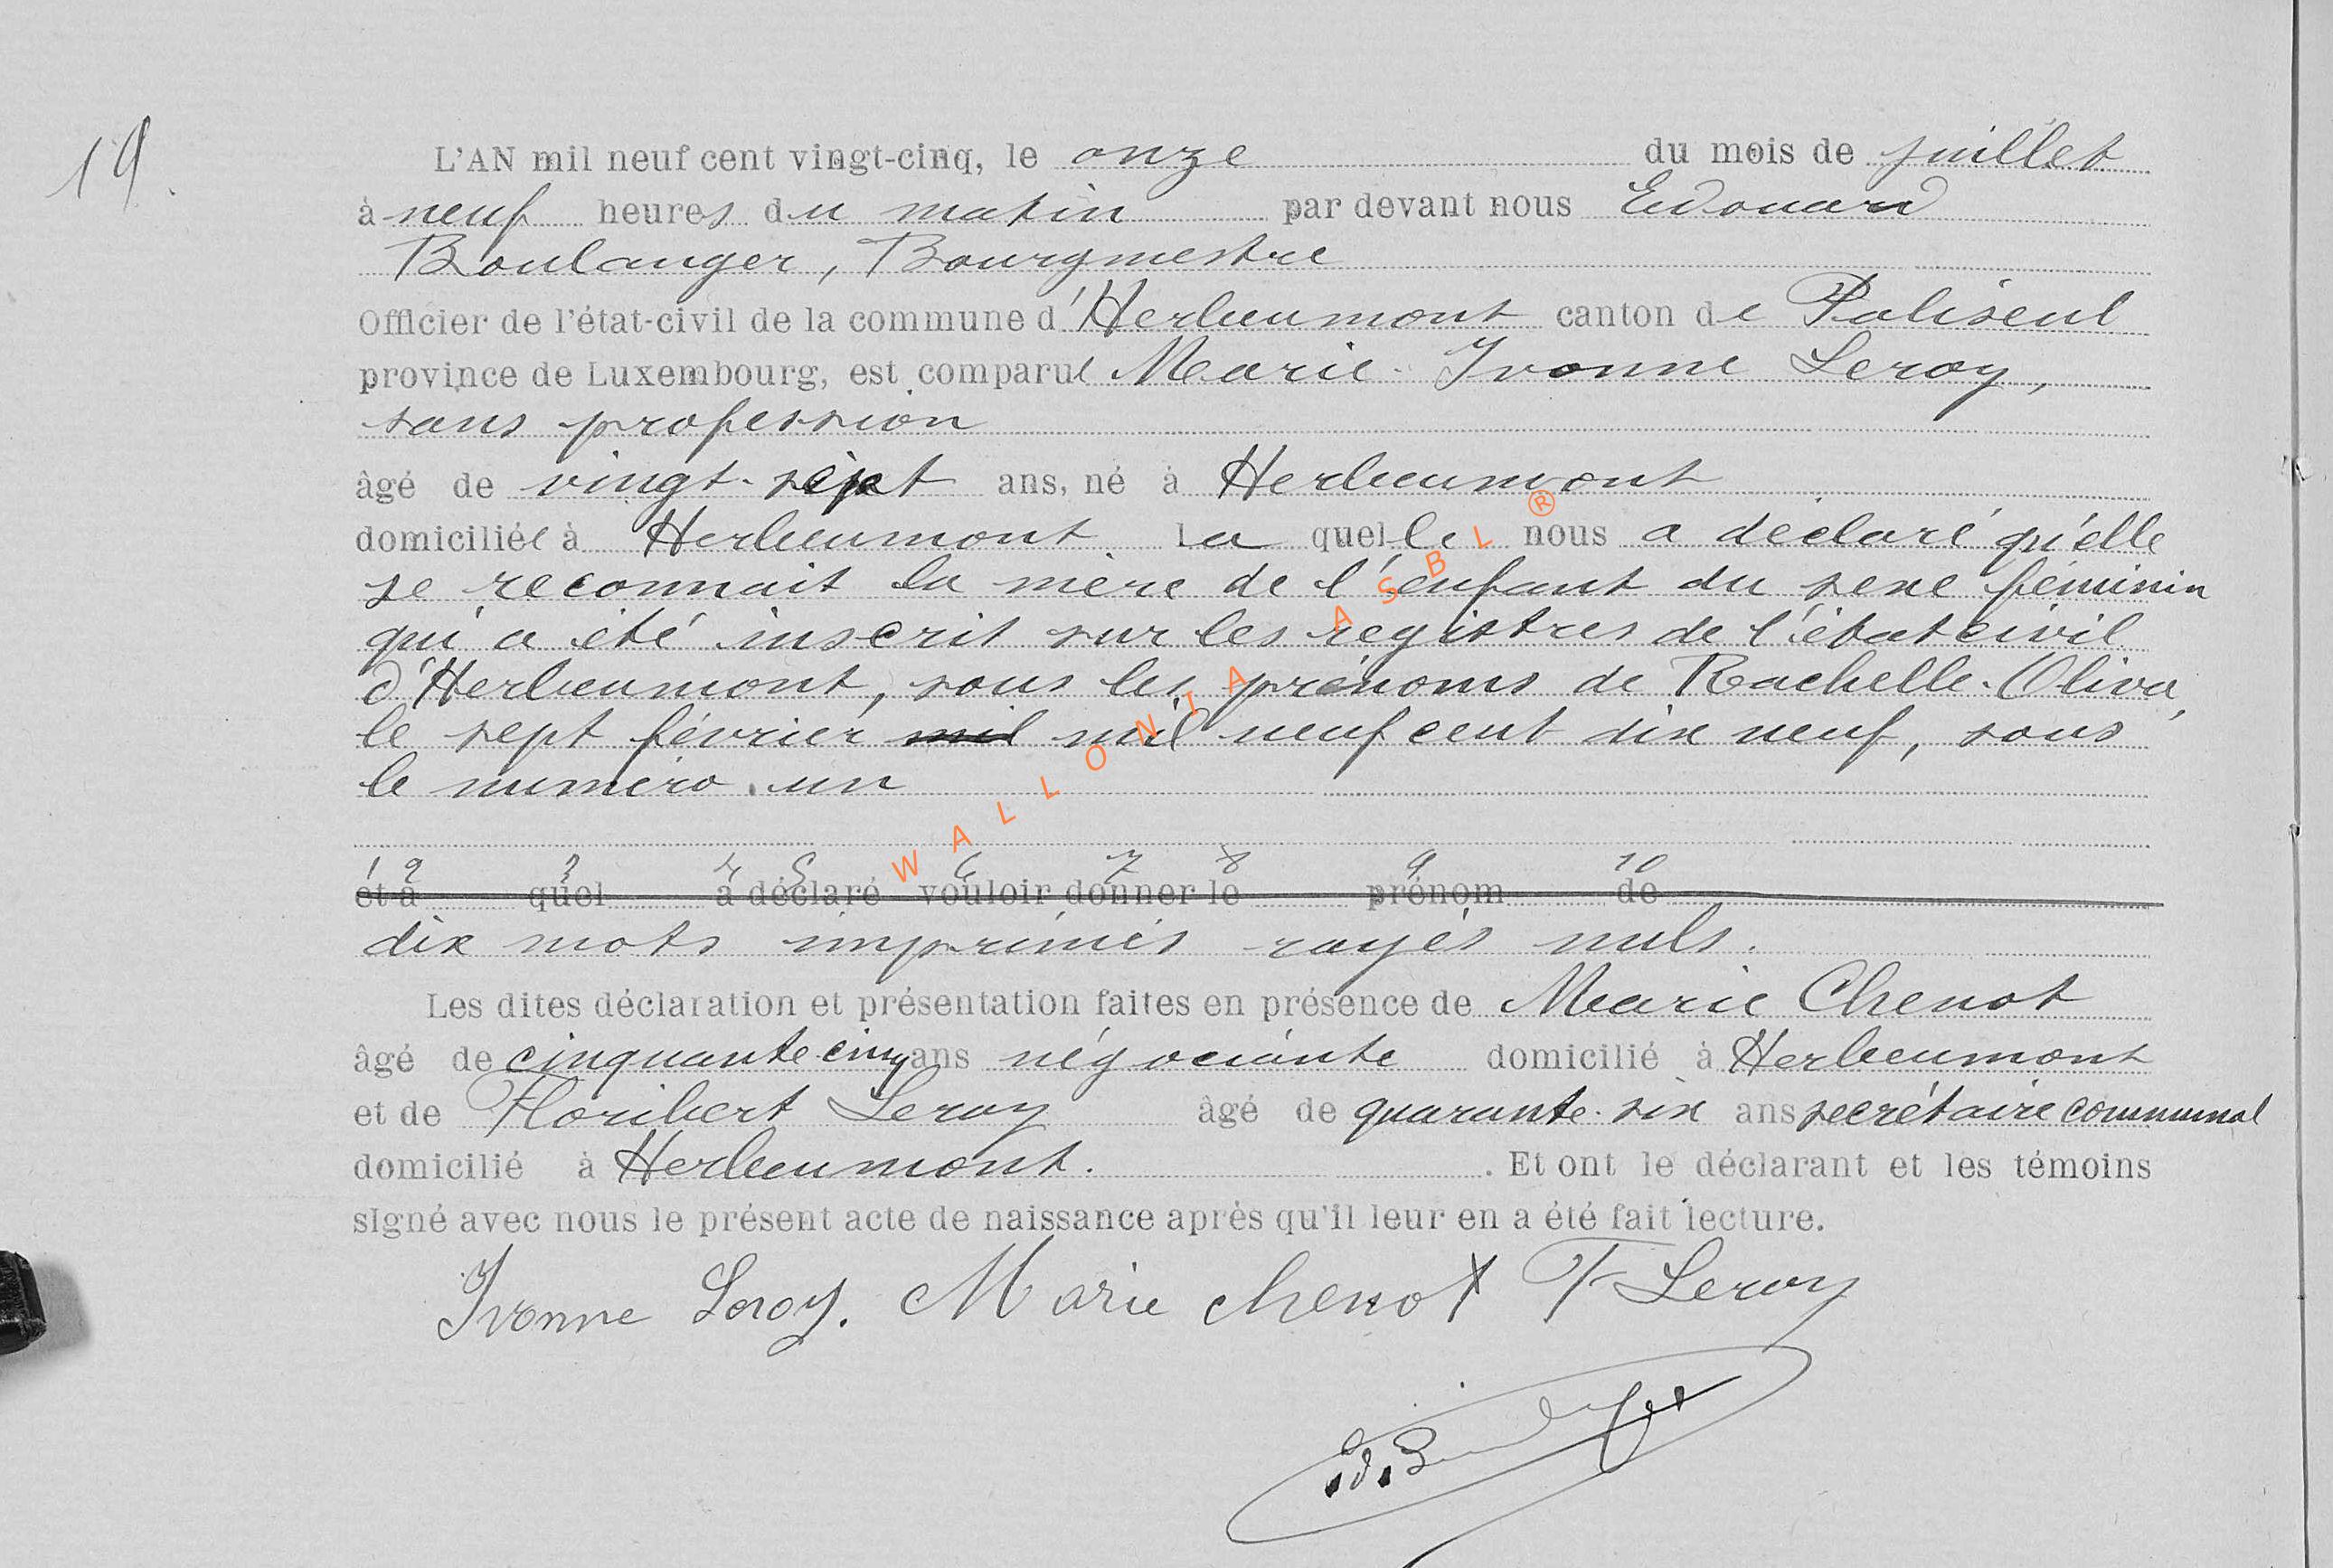 19.
L'AN mil neuf cent vingt-cinq, le onze du mois de juillet
à neuf heures du matin par devant nous Edouard
Boulanger, Bourgmestre
Officier de l'état-civil de la commune d'Herbeumont canton de Paliseul
province de Luxembourg, est comparue Marie-Yvonne Leroy,
sans profession
âgé de vingt-sept ans, né à Herbeumont
domiciliée à Herbeumont la quelle nous a déclaré qu'elle
se reconnait la mère de l'enfant du sexe féminin
qui a été inscrit sur les registres de l'état civil
d'Herbeumont, sous les prénoms de Rachelle-Oliva,
le sept février mil mil neuf cent dix neuf, sous
le numéro un
1 2 3 4 5 6 7 8 9 10
et a quel a déclaré vouloir donner le prénom de
dix mots imprimés rayés nuls.
Les dites déclaration et présentation faites en présence de Marie Chenot
âgé de cinquante-cinq ans négociante domicilié à Herbeumont
et de Floribert Leroy âgé de quarante-six ans secrétaire communal
domicilié à Herbeumont. . Et ont le déclarant et les témoins
signé avec nous le présent acte de naissance après qu'il leur en a été fait lecture.
Yvonne Leroy. Marie Chenot F Leroy
WALLONIA ASBL ®